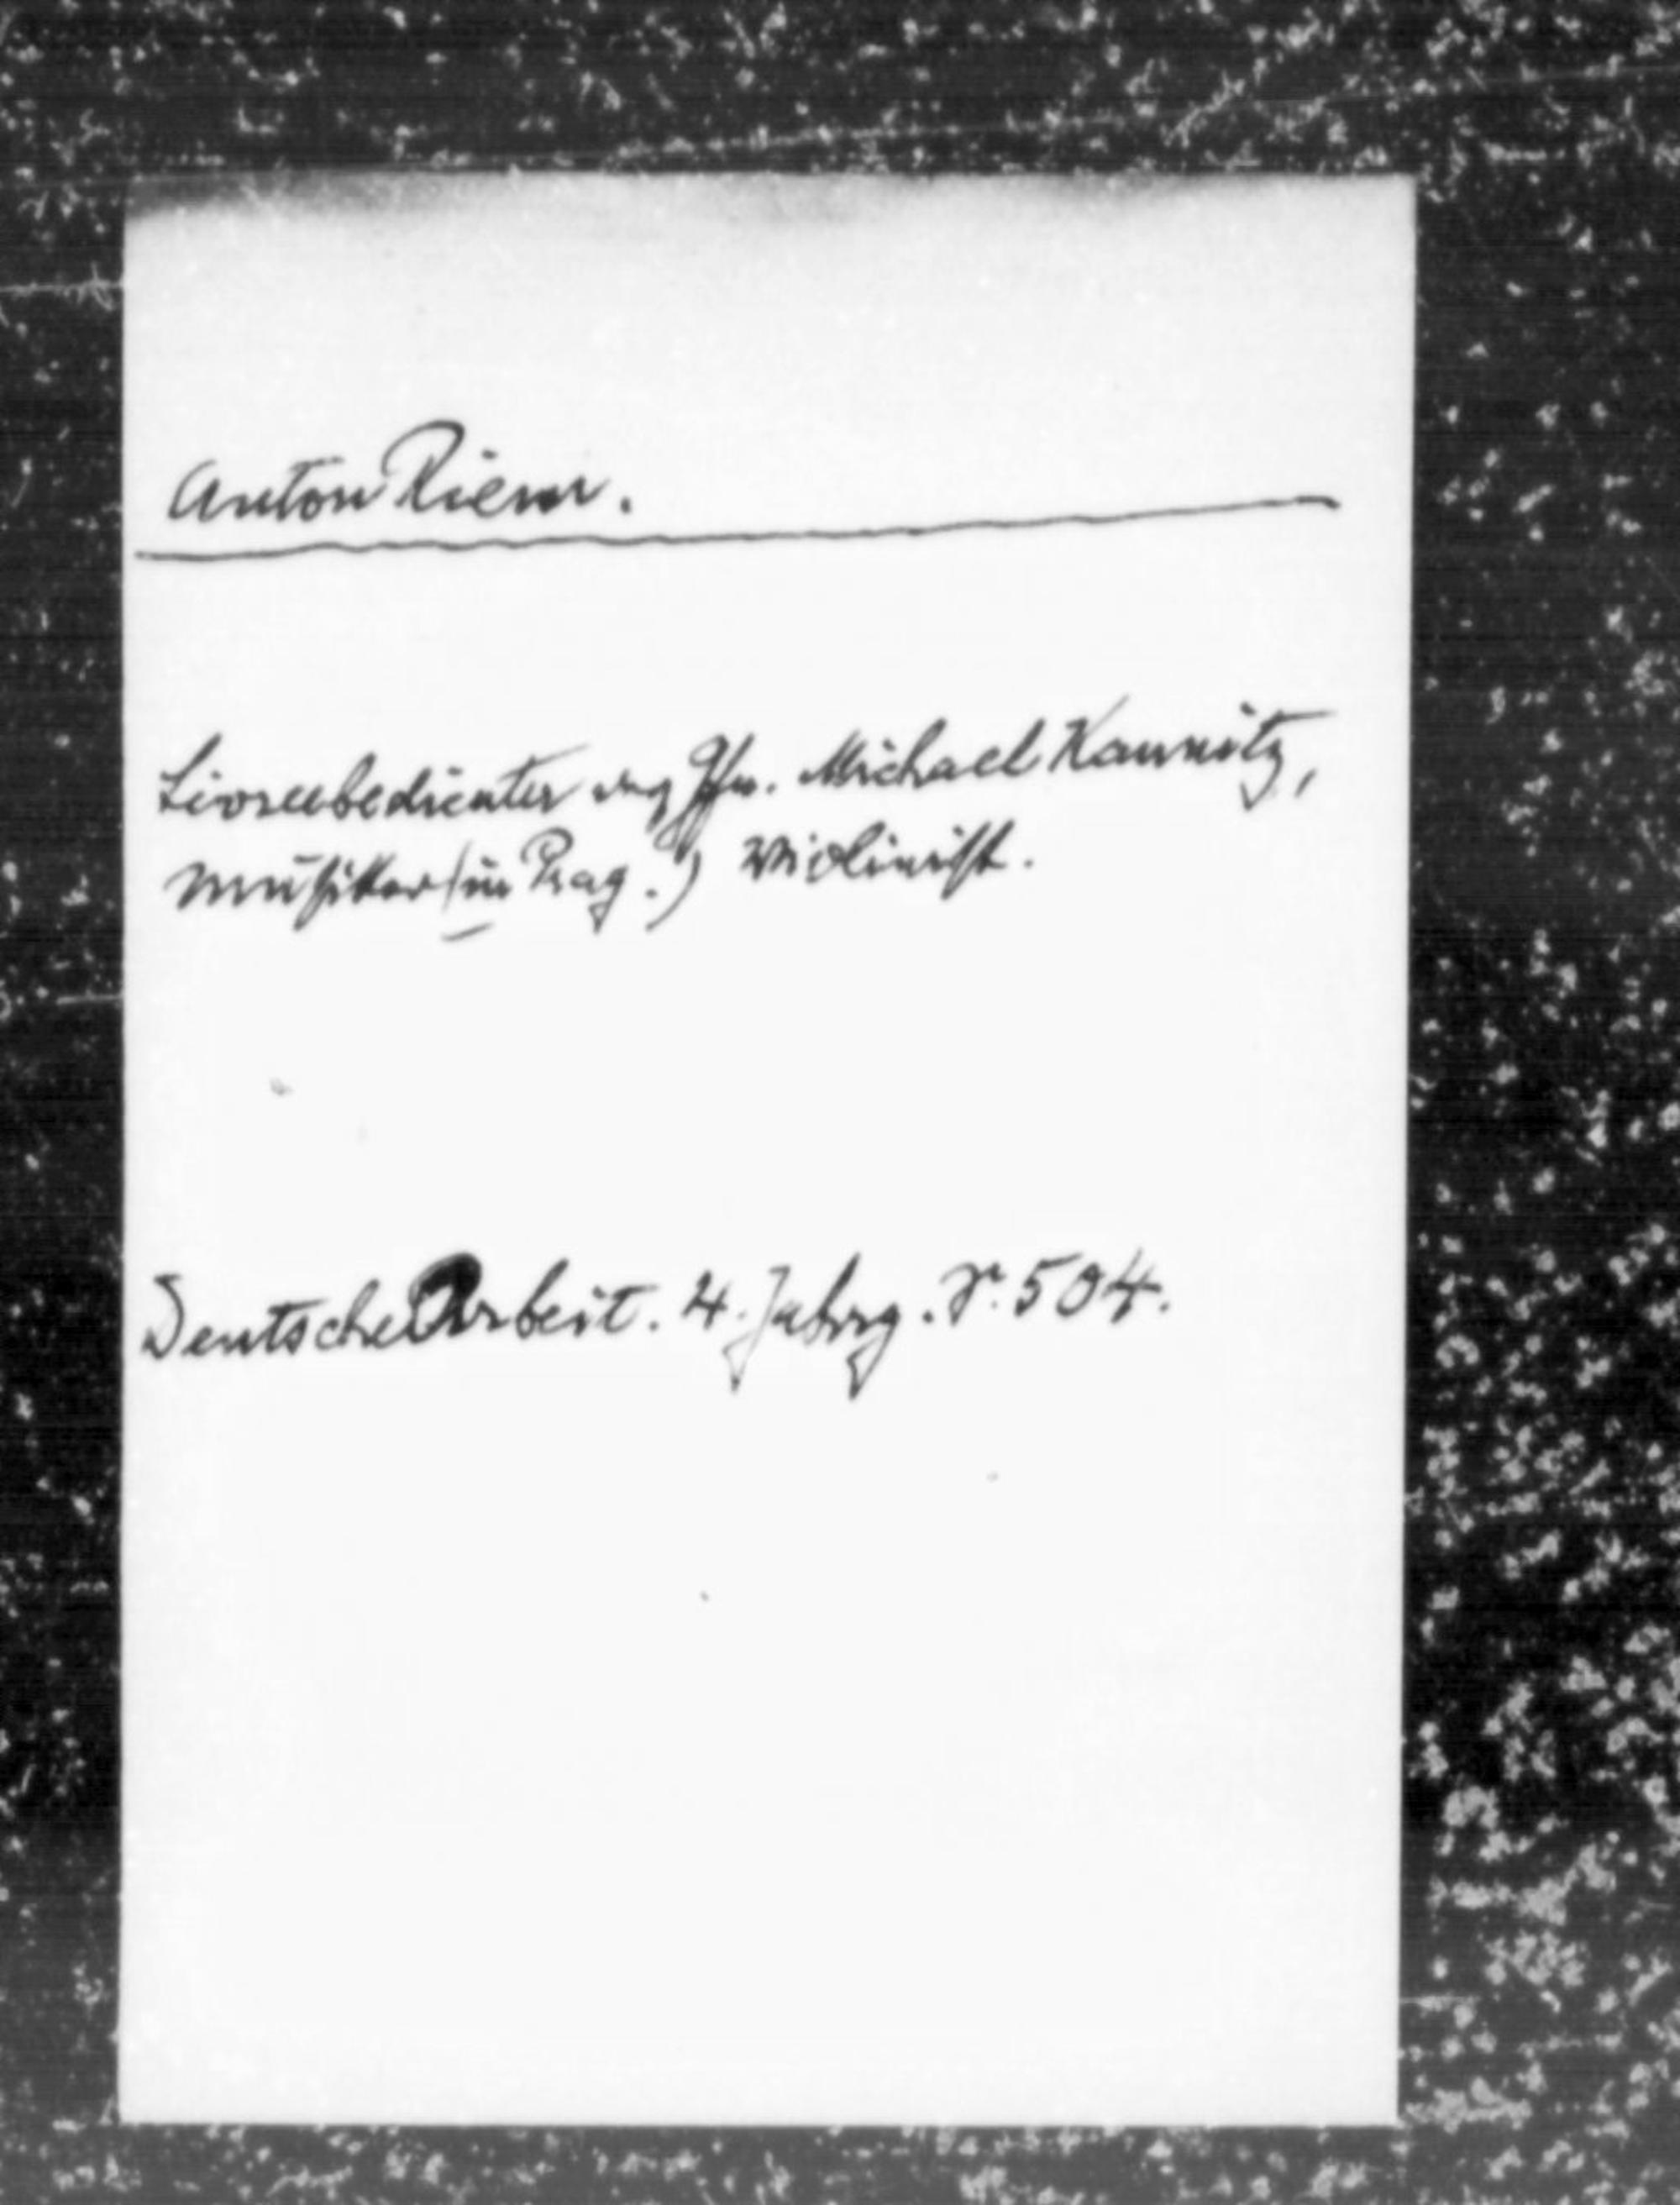 Anton Riem.
Livreebedienter des Gfn. Michael Kaunitz,
Musiker (in Prag.) Violinist.
Deutsche Arbeit. 4. Jahrg. S. 504.